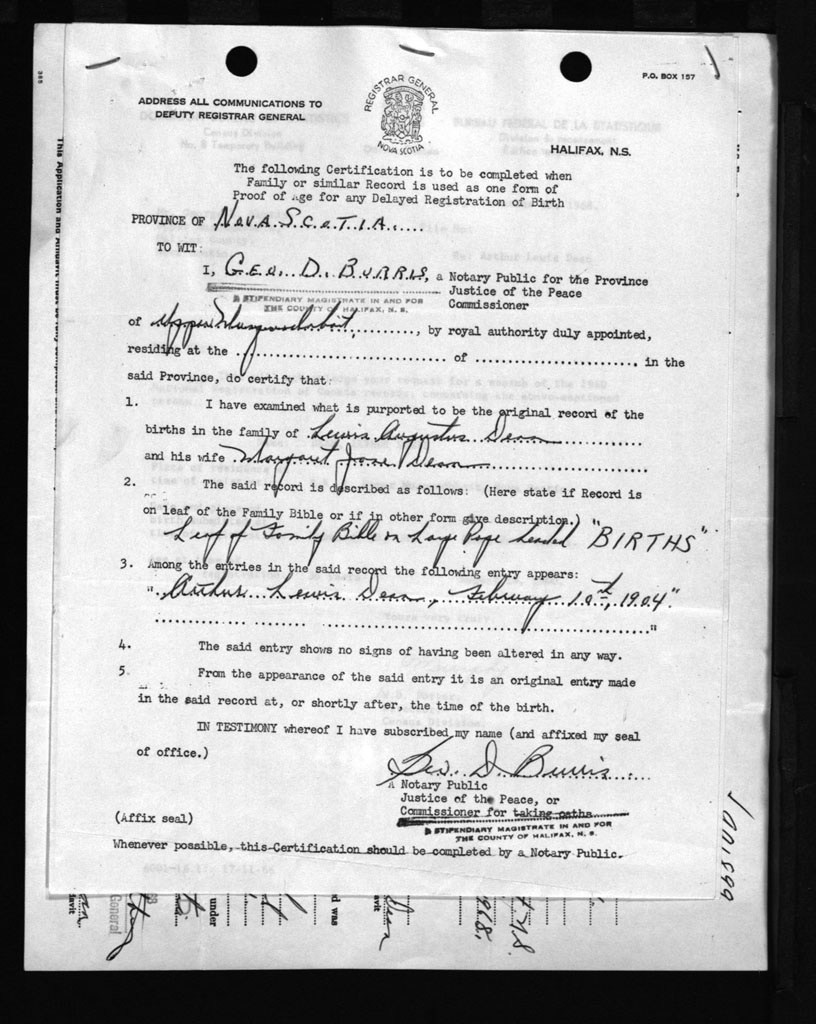 P.O. BOX 157
REGISTRAR GENERAL
NOVA SCOTIA
ADDRESS ALL COMMUNICATIONS TO
DEPUTY REGISTRAR GENERAL
HALIFAX, N.S.
The following Certification is to be completed when
Family or similar Record is used as one form of
Proof of Age for any Delayed Registration of Birth
PROVINCE OF NOVA SCOTIA
TO WIT:
I, GEO. D. BURRIS, a Notary Public for the Province
Justice of the Peace
Commissioner
A STIPENDIARY MAGISTRATE IN AND FOR
THE COUNTY OF HALIFAX, N. S.
of Upper Musquodoboit, by royal authority duly appointed,
residing at the .......... of .........., in the
said Province, do certify that:
1. I have examined what is purported to be the original record of the
births in the family of Lewis Augustus Dean
and his wife Margaret Jane Dean
2. The said record is described as follows: (Here state if Record is
on leaf of the Family Bible or if in other form give description.)
Leaf of Family Bible on Large Page headed "BIRTHS"
3. Among the entries in the said record the following entry appears:
"Arthur Lewis Dean, February 10th, 1904."
"
4. The said entry shows no signs of having been altered in any way.
5. From the appearance of the said entry it is an original entry made
in the said record at, or shortly after, the time of the birth.
IN TESTIMONY whereof I have subscribed my name (and affixed my seal
of office.)
Geo. D. Burris
A Notary Public
Justice of the Peace, or
Commissioner for taking oaths
A STIPENDIARY MAGISTRATE IN AND FOR
THE COUNTY OF HALIFAX, N. S.
(Affix seal)
Whenever possible, this Certification should be completed by a Notary Public.
under
d was
Dean
1968
N.S.
General